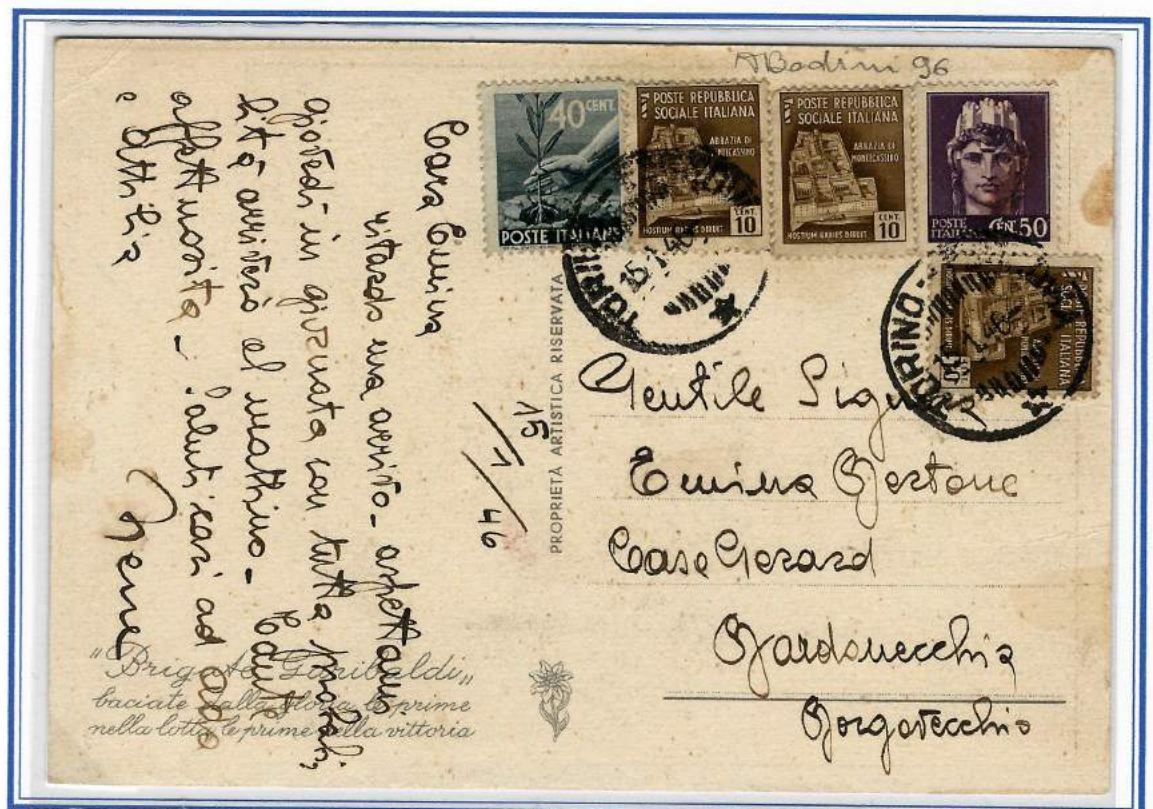 ABadini 96
40 CENT.
POSTE ITALIANE
POSTE REPUBBLICA
SOCIALE ITALIANA
ABBAZIA DI
MONTECASSINO
CENT.
10
HOSTIUM RABIES DIRUIT
POSTE REPUBBLICA
SOCIALE ITALIANA
ABBAZIA DI
MONTECASSINO
CENT.
10
HOSTIUM RABIES DIRUIT
POSTE
ITALIANE
CEN. 50
REPUBBLICA
ITALIANA
TORINO
15.1.46
TORINO
15.1.46
Cara Emina
ritardo mio arrivo - aspettami
giovedì in giornata con tutta probabi,
lità arriverò al mattino -
affettuosità - Saluti cari ad
e Ottilia
Irene
15/1/46
PROPRIETÀ ARTISTICA RISERVATA
Gentile Sig
Emina Bertone
Case Gerard
Bardonecchia
Borgovecchio
"Brigate Garibaldi„
baciate dalla Gloria le prime
nella lotta le prime nella vittoria